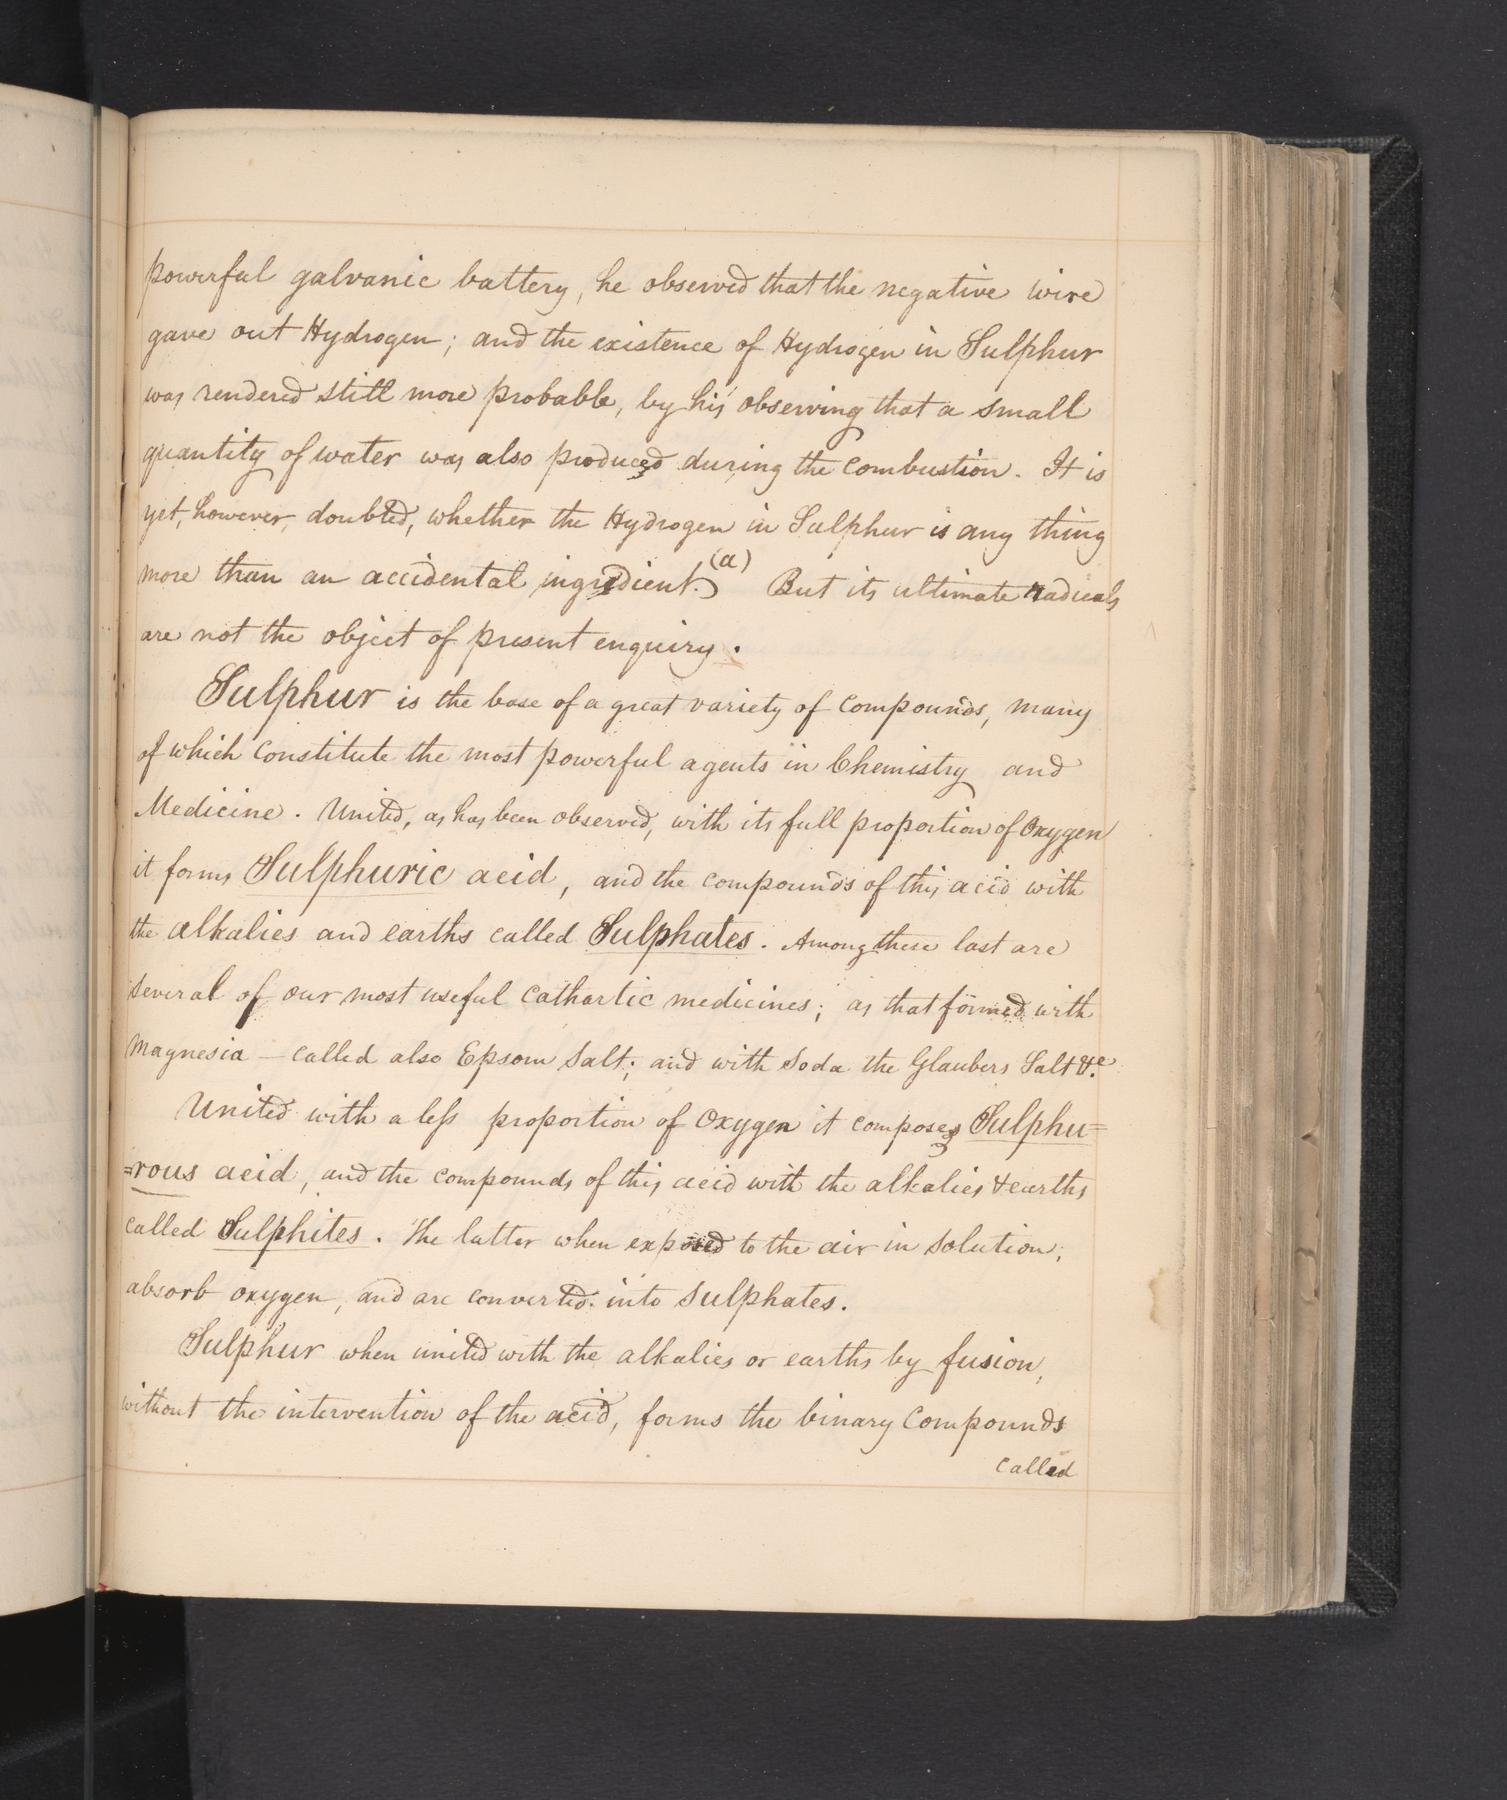 powerful galvanic battery, he observed that the negative wire
gave out Hydrogen; and the existence of Hydrogen in Sulphur
was rendered still more probable, by his observing that a small
quantity of water was also produced during the combustion. It is
yet, however, doubted, whether the Hydrogen in Sulphur is any thing
more than an accidental ingredient.) (a) But its ultimate radicals
are not the object of present enquiry.
Sulphur is the base of a great variety of compounds, many
of which constitute the most powerful agents in Chemistry and
Medicine. United, as has been observed, with its full proportion of Oxygen
it forms Sulphuric acid, and the compounds of this acid with
the alkalies and earths called Sulphates. Among these last are
several of our most useful cathartic medicines; as that formed with
magnesia — called also Epsom Salt; and with Soda the Glaubers Salt &c.
United with a less proportion of Oxygen it composes Sulphu=
=rous acid, and the compounds of this acid with the alkalies & earths
called Sulphites. The latter when exposed to the air in solution,
absorb oxygen, and are converted into Sulphates.
Sulphur when united with the alkalies or earths by fusion,
without the intervention of the acid, forms the binary compounds
called